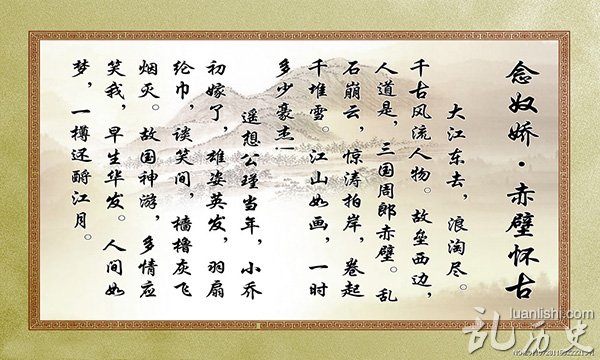 念奴娇·赤壁怀古
大江东去，浪淘尽。
千古风流人物。故垒西边，
人道是，三国周郎赤壁。乱
石崩云，惊涛拍岸，卷起
千堆雪。江山如画，一时
多少豪杰！
遥想公瑾当年，小乔
初嫁了，雄姿英发，羽扇
纶巾，谈笑间，樯橹灰飞
烟灭。故国神游，多情应
笑我，早生华发。人间如
梦，一樽还酹江月。
luanlishi.com
乱历史